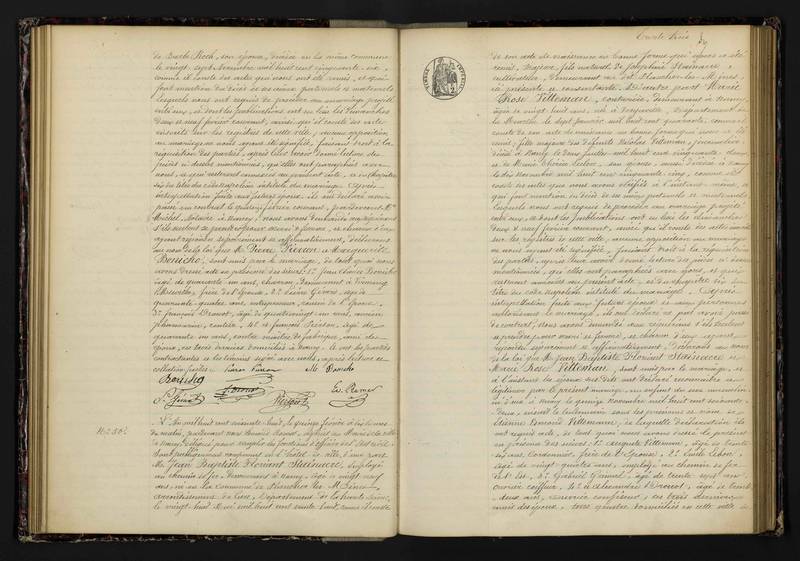 de Barbe Roch, son épouse, décédée en la même commune
le vingt sept Novembre mil huit cent cinquante six,
comme il conste des actes qui nous ont été remis, et qui
font mention du décès de ses aïeux paternels et maternels
lesquels nous ont requis de procéder au mariage projeté
entre eux, et dont les publications ont eu lieu les dimanches
deux et neuf février courant, ainsi qu'il conste des actes
inscrits sur les registres de cette ville; aucune opposition
au mariage ne nous ayant été signifiée, faisant droit à la
réquisition des parties, après leur avoir donné lecture des
pièces ci-dessus mentionnées, qu'elles ont paraphées avec
nous, et qui resteront annexées au présent acte, et du chapitre
six du titre du code Napoléon intitulé du mariage. Après
interpellation faite aux futurs époux, ils ont déclaré avoir
passé un contrat le quinze février courant, par devant Me
Michel, notaire à Nancy; nous avons demandé aux requérants
s'ils veulent se prendre pour mari et femme, et chacun d'eux
ayant répondu séparément et affirmativement, déclarons
au nom de la loi que M. Pierre Pierson et Marguerite
Bonicho, sont unis par le mariage, de tout quoi nous
avons dressé acte en présence des sieurs 1° Jean Bonicho
âgé de quarante un ans, demeurant à
frère de l'épouse, 2° Pierre Gérard, âgé de
quarante quatre ans, entrepreneur, cousin de l'époux,
3° François Drouot, âgé de quatre vingt un ans, ancien
pharmacien, rentier, 4° et François Pierson, âgé de
quarante un ans, contre maître de fabrique, ami des
époux, ces trois derniers domiciliés à Nancy, et ont les parties
contractantes et les témoins signé avec nous, après lecture et
collation faites. Pierre Pierson M. Bonicho
Bonicho
N° 56.
L'An mil huit cent soixante huit, le quinze février à dix heures
du matin, pardevant nous adjoint au Maire de la ville
de Nancy, délégué pour remplir les fonctions d'officier de l'état civil
sont publiquement comparus en l'hôtel de ville, d'une part
Mr Jean Baptiste Florient Stainacre, employé
au chemin de fer, demeurant à Nancy, âgé de vingt neuf
ans, né en la commune de Plancher les Mines,
arrondissement de Lure, Département de la Haute Saône,
le vingt huit Mai mil huit cent trente huit, comme il conste
de son acte de naissance en bonne forme qui nous a été
remis, majeur, fils naturel de Joséphine Stainacre,
cultivatrice, demeurant au dit Plancher les Mines,
ici présente et consentante. D'autre part Marie
Rose Villemin, couturière, demeurant à Nancy,
âgée de vingt huit ans, née à Département de
la Meurthe, le sept janvier mil huit cent quarante, comme il
conste de son acte de naissance en bonne forme qui nous a été
remis; fille majeure des défunts Nicolas Villemin, journalier
décédé à Nancy le deux juillet mil huit cent cinquante deux
et de Marie Lebon, son épouse, aussi décédée à Nancy
le dix novembre mil huit cent cinquante cinq, comme il
conste des actes que nous avons vérifiés à l'instant même, et
qui font mention du décès de ses aïeux paternels et maternels
lesquels nous ont requis de procéder au mariage projeté
entre eux, et dont les publications ont eu lieu les dimanches
deux et neuf février courant, ainsi qu'il conste des actes inscrits
sur les registres de cette ville, aucune opposition au mariage
ne nous ayant été signifiée, faisant droit à la réquisition
des parties, après leur avoir donné lecture des pièces ci-dessus
mentionnées, qu'elles ont paraphées avec nous, et qui
resteront annexées au présent acte, et du chapitre six du
titre du code Napoléon intitulé du mariage. Après
interpellation faite aux futurs époux et aux personnes
autorisant le mariage, ils ont déclaré ne pas avoir passé
de contrat; nous avons demandé aux requérants s'ils veulent
se prendre pour mari et femme, et chacun d'eux ayant
répondu séparément et affirmativement, déclarons au nom
de la loi que M. Jean Baptiste Florient Stainacre et
Marie Rose Villemin, sont unis par le mariage, et
à l'instant les époux ont déclaré reconnaître et
légitimer par le présent mariage, un enfant du sexe masculin
né d'eux à Nancy le quinze Novembre mil huit cent soixante
deux, inscrit le lendemain sous les prénoms et nom de
Étienne Villemin, de laquelle déclaration ils
ont requis acte, de tout quoi nous avons dressé le présent
en présence des sieurs 1° Auguste Villemin, âgé de trente
six ans, cordonnier, frère de l'épouse, 2° Émile Lebon,
âgé de vingt quatre ans, employé au chemin de fer
de l'Est, 3° Gabriel âgé de trente sept ans,
ouvrier coiffeur, 4° et Alexandre Drouot, âgé de trente
deux ans, ouvrier confiseur, ces trois derniers
amis des époux, tous quatre domiciliés en cette ville et